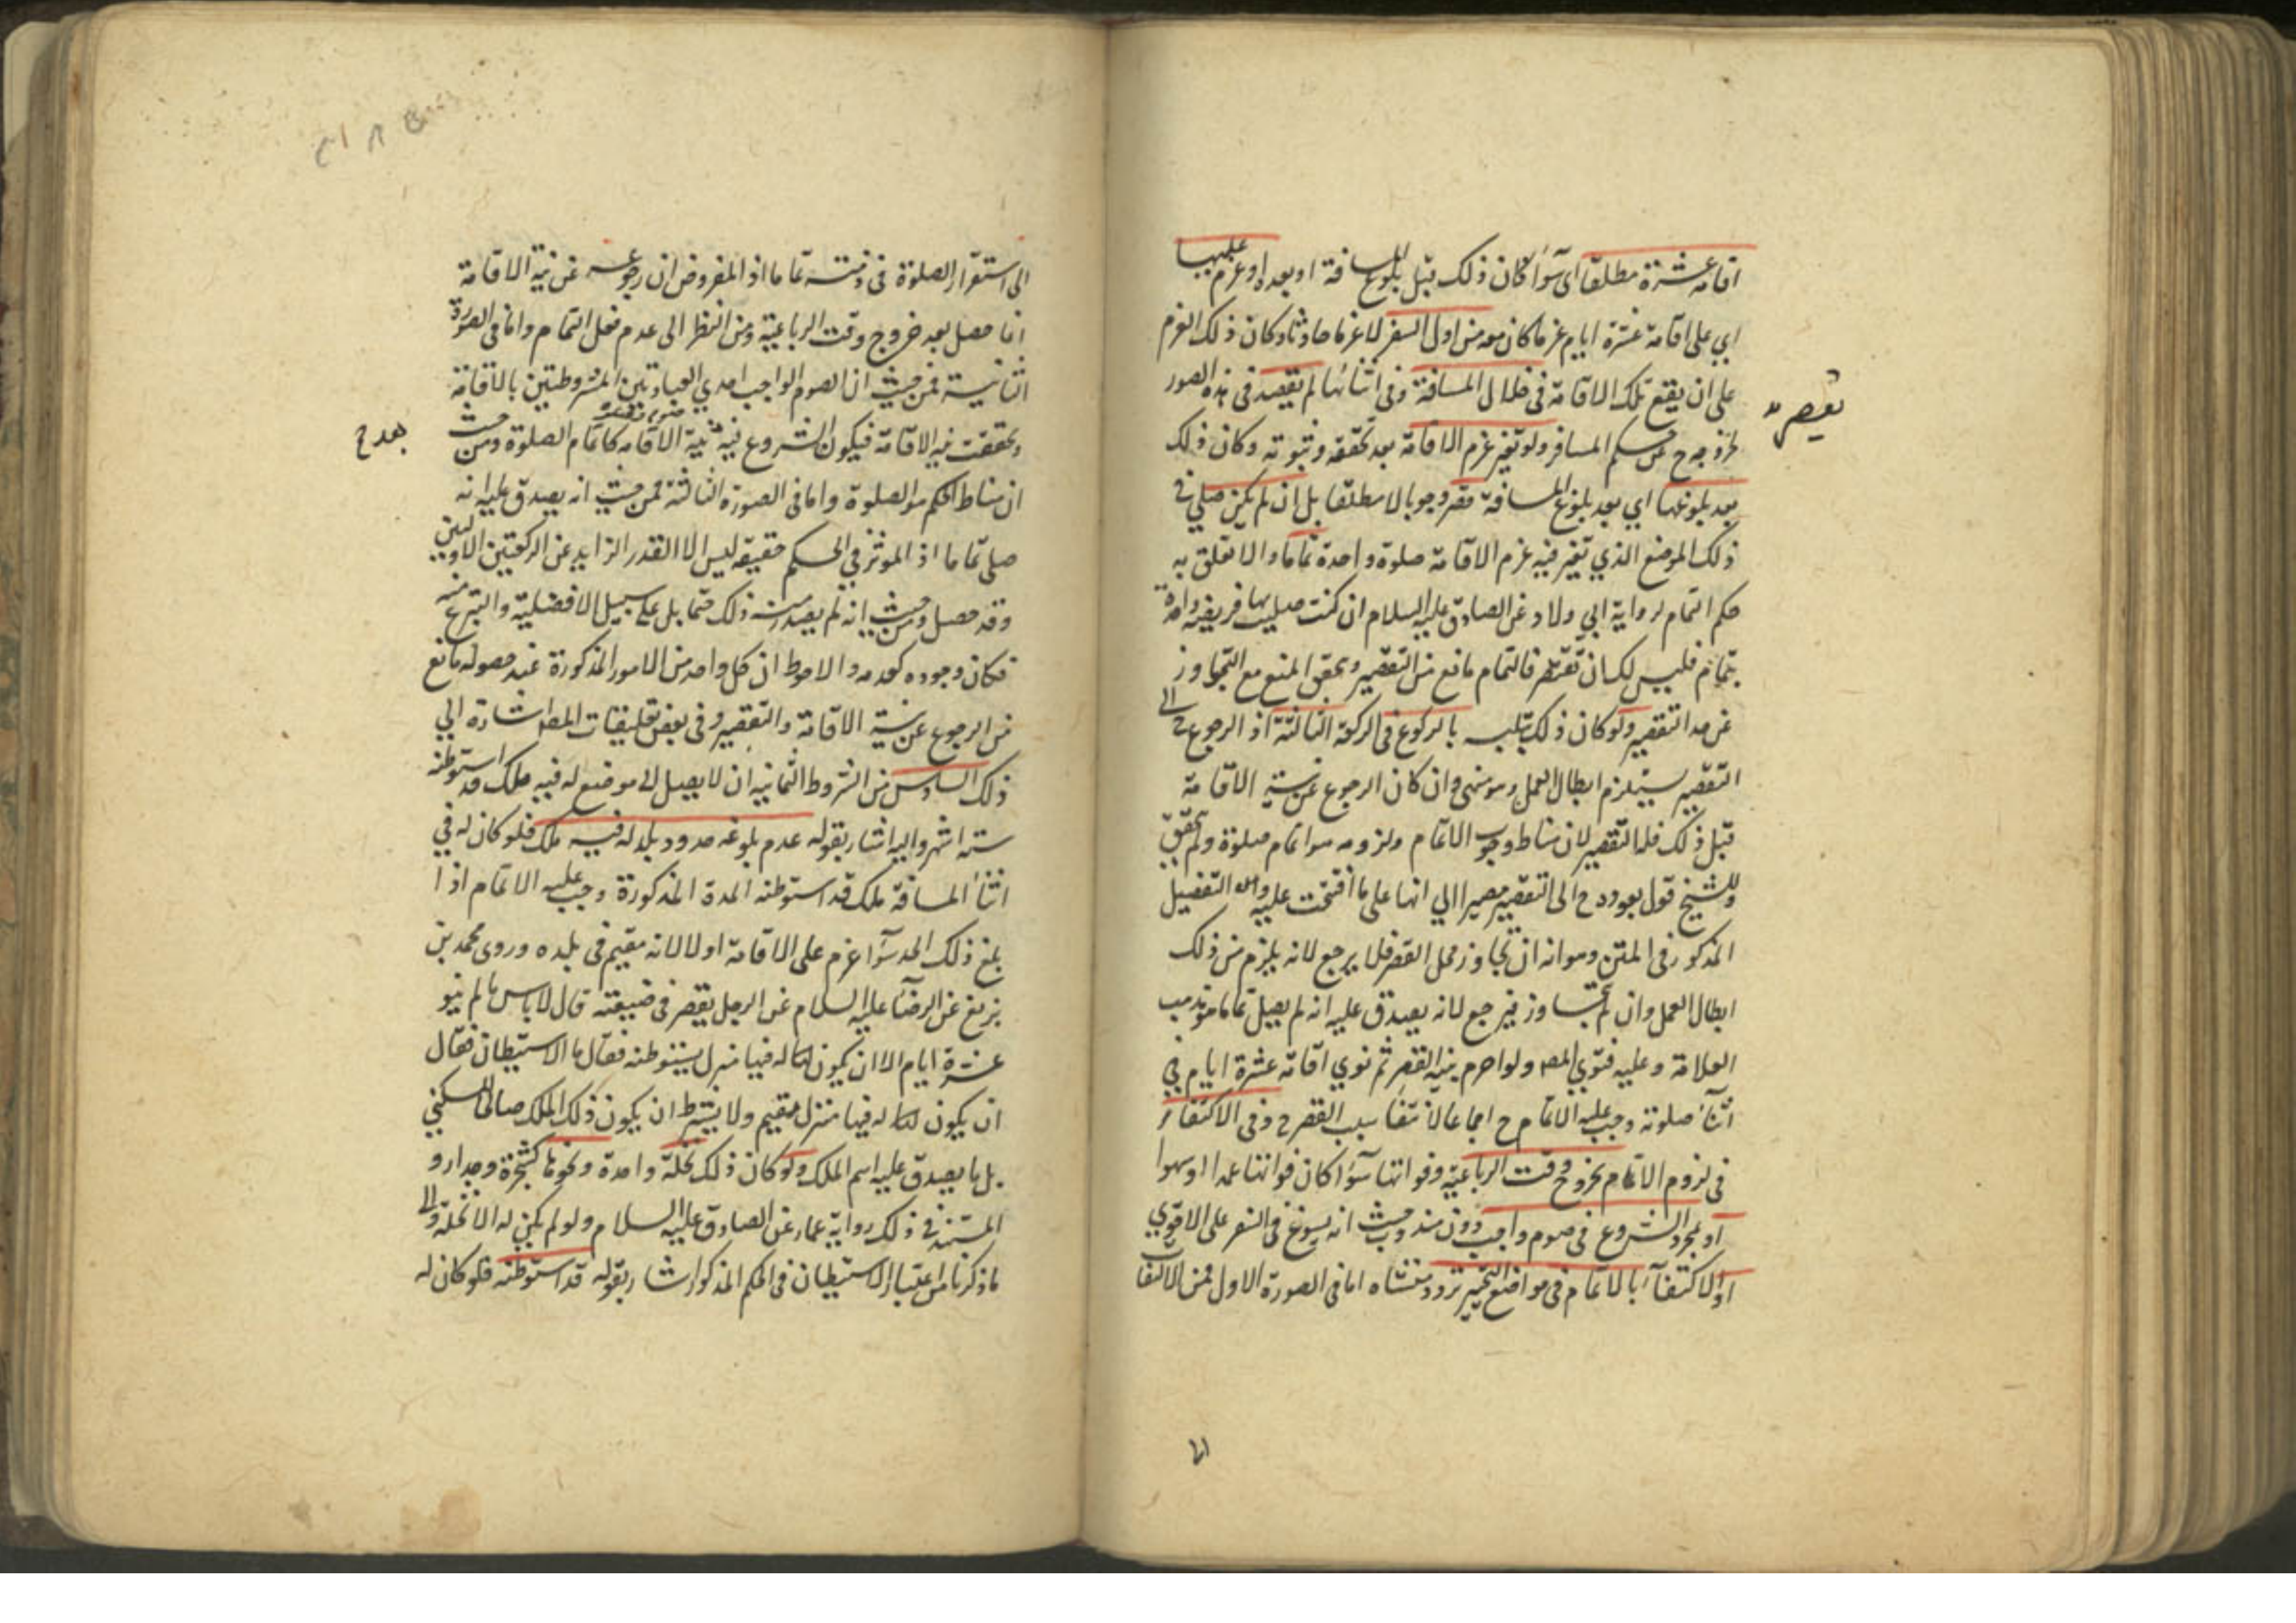 اقامة عشرة مطلقا اى سوآء كان ذلك قبل بلوغ المسافة او بعده او عزم عليها
اي على اقامة عشرة ايام عزما كان معه من اول السفر لا عزما حادثا وكان ذلك العزم
على ان يقع تلك الاقامة فى خلال المسافة وفى اثنائها لم يقصر فى هذه الصور
لخروجه ح عن حكم المسافر ولو تغير عزم الاقامة بعد تحققه وثبوته وكان ذلك
بعد بلوغها اي بعد بلوغ المسافة قصر وجوبا لا مطلقا بل ان لم يكن صلي في
ذلك الموضع الذي تغير فيه عزم الاقامة صلوة واحدة تماما والا تعلق به
حكم التمام لرواية ابي ولاد عن الصادق عليه السلام ان كنت صليت بها فريضة واحدة
بتمام فليس لك ان تقصر فالتمام مانع من التقصير ويحقق المنع مع التجاوز
عن حد التقصير ولو كان ذلك تلبسه بالركوع فى الركعة الثالثة اذ الرجوع ح الى
التقصير يستلزم ابطال العمل وهو منهى وان كان الرجوع عن نية الاقامة
قبل ذلك فله التقصير لان مناط وجوب الاتمام ولزومه هو اتمام صلوة ولم يحقق
وللشيخ قول بعوده ح الى التقصير مصيرا الي انها على ما افتتحت عليه والى التفصيل
المذكور فى المتن وهو انه ان تجاوز محل القصر فلا يرجع لانه يلزم من ذلك
ابطال العمل وان لم يتجاوز فيرجع لانه يصدق عليه انه لم يصل تماما هو مذهب
العلامة وعليه فتوي المصـ ولو احرم بنية القصر ثم نوي اقامة عشرة ايام في
اثنآء صلوته وجب عليه الاتمام ح اجماعا لانتفاء سبب القصر ح وفى الاكتفاء
فى لزوم الاتمام بخروج وقت الرباعية وفواتها سوآء كان فواتها عمدا او سهوا
او بمجرد الشروع فى صوم واجب دون مندوب حيث انه يسوغ فى السفر على الاقوي
او الاكتفآء بالاتمام فى مواضع التخيير تردد منشاه اما فى الصورة الاول فمن الالتفات
تقصر
الى استقرار الصلوة فى ذمته تماما اذ المفروض ان رجوعه عن نية الاقامة
انما حصل بعد خروج وقت الرباعية ومن النظر الى عدم فعل التمام واما فى الصورة
الثانية فمن حيث ان الصوم الواجب احدي العبادتين المشروطتين بالاقامة
وتحققت نية الاقامة فيكون الشروع فيه بنية الاقامة كاتمام الصلوة ومن حيث
ان مناط الحكم هو الصلوة واما فى الصورة الثالثة فمن حيث انه يصدق عليه انه
صلى تماما اذ الموثر في الحكم حقيقة ليس الا القدر الزايد عن الركعتين الاوليين
وقد حصل ومن حيث انه لم يصدر منه ذلك حتما بل على سبيل الافضلية والتبرع منه
فكان وجوده كعدمه والاحوط ان كل واحد من الامور المذكورة عند حصوله مانع
من الرجوع عن نية الاقامة والتقصير وفى بعض تعليقات المصـ اشارة الي
ذلك السادس من الشروط الثمانية ان لا يصل الى موضع له فيه ملك قد استوطنه
ستة اشهر واليه اشار بقوله عدم بلوغه حدود بلد له فيه ملك فلو كان له في
اثنآء المسافة ملك قد استوطنه المدة المذكورة وجب عليه الاتمام اذا
بلغ ذلك الحد سوآء عزم على الاقامة او لا لانه مقيم فى بلده وروى محمد بن
بزيع عن الرضا عليه السلام عن الرجل يقصر فى ضيعته قال لا باس ما لم ينو
عشرة ايام الا ان يكون له فيها منزل يستوطنه فقال ما الاستيطان فقال
ان يكون له فيها منزل مقيم ولا يشترط ان يكون ذلك الملك صالحا للسكني
بل ما يصدق عليه اسم الملك ولو كان ذلك نخلة واحدة ونحوها كشجرة وجدار و
المستند في ذلك رواية عمار عن الصادق عليه السلام ولو لم يكن له الا نخلة والى
ما ذكرنا من اعتبار الاستيطان فى الحكم المذكور اشار بقوله قد استوطنه فلو كان له
بعد ح